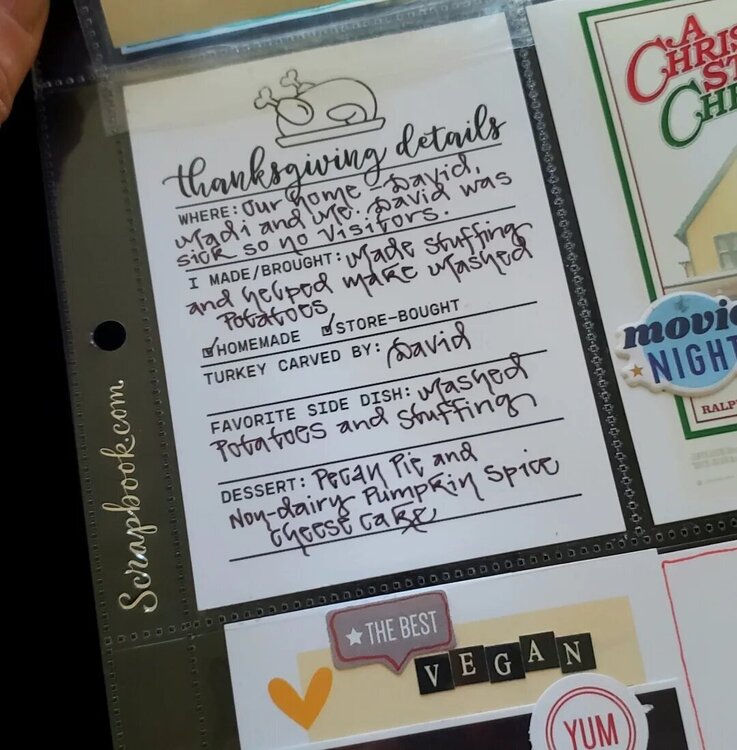 thanksgiving details
WHERE: Our home - David,
Madi and Me. David was
sick so no visitors.
I MADE/BROUGHT: Made stuffing
and helped make Mashed
Potatoes
HOMEMADE STORE-BOUGHT
TURKEY CARVED BY: David
FAVORITE SIDE DISH: Mashed
Potatoes and Stuffing
DESSERT: Pecan Pie and
Non-dairy Pumpkin Spice
Cheese Cake
Scrapbook.com
A
CHRIS
ST
CHR
movie
NIGHT
RALP
THE BEST
VEGAN
YUM